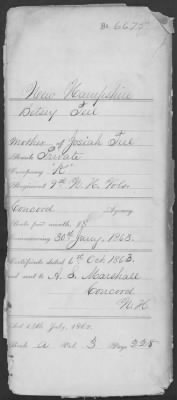 No. 6675
New Hampshire
Betsey Tiel
Mother of Josiah Tiel
Rank Private
Company "K"
Regiment 7th N. H. Vols.
Concord Agency.
Rate per month, $8
Commencing 30th Jany. 1863.
Certificate dated 6th Oct. 1863.
and sent to A. S. Marshall
Concord
N. H.
Act 14th July, 1862.
Book A Vol. 3 Page 228